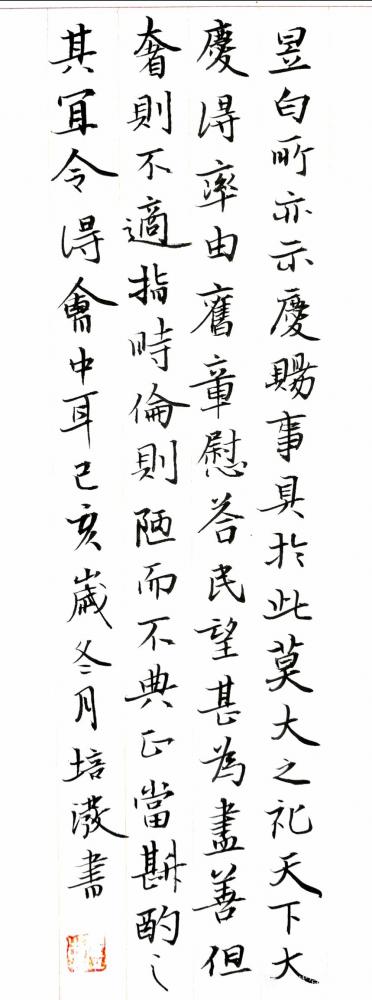 昱白所亦示慶賜事具於此莫大之祀天下大
慶得率由舊章慰荅民望甚為盡善但
奢則不適指時倫則陋而不典正當斟酌之
其冝令得會中耳己亥歲冬月培書